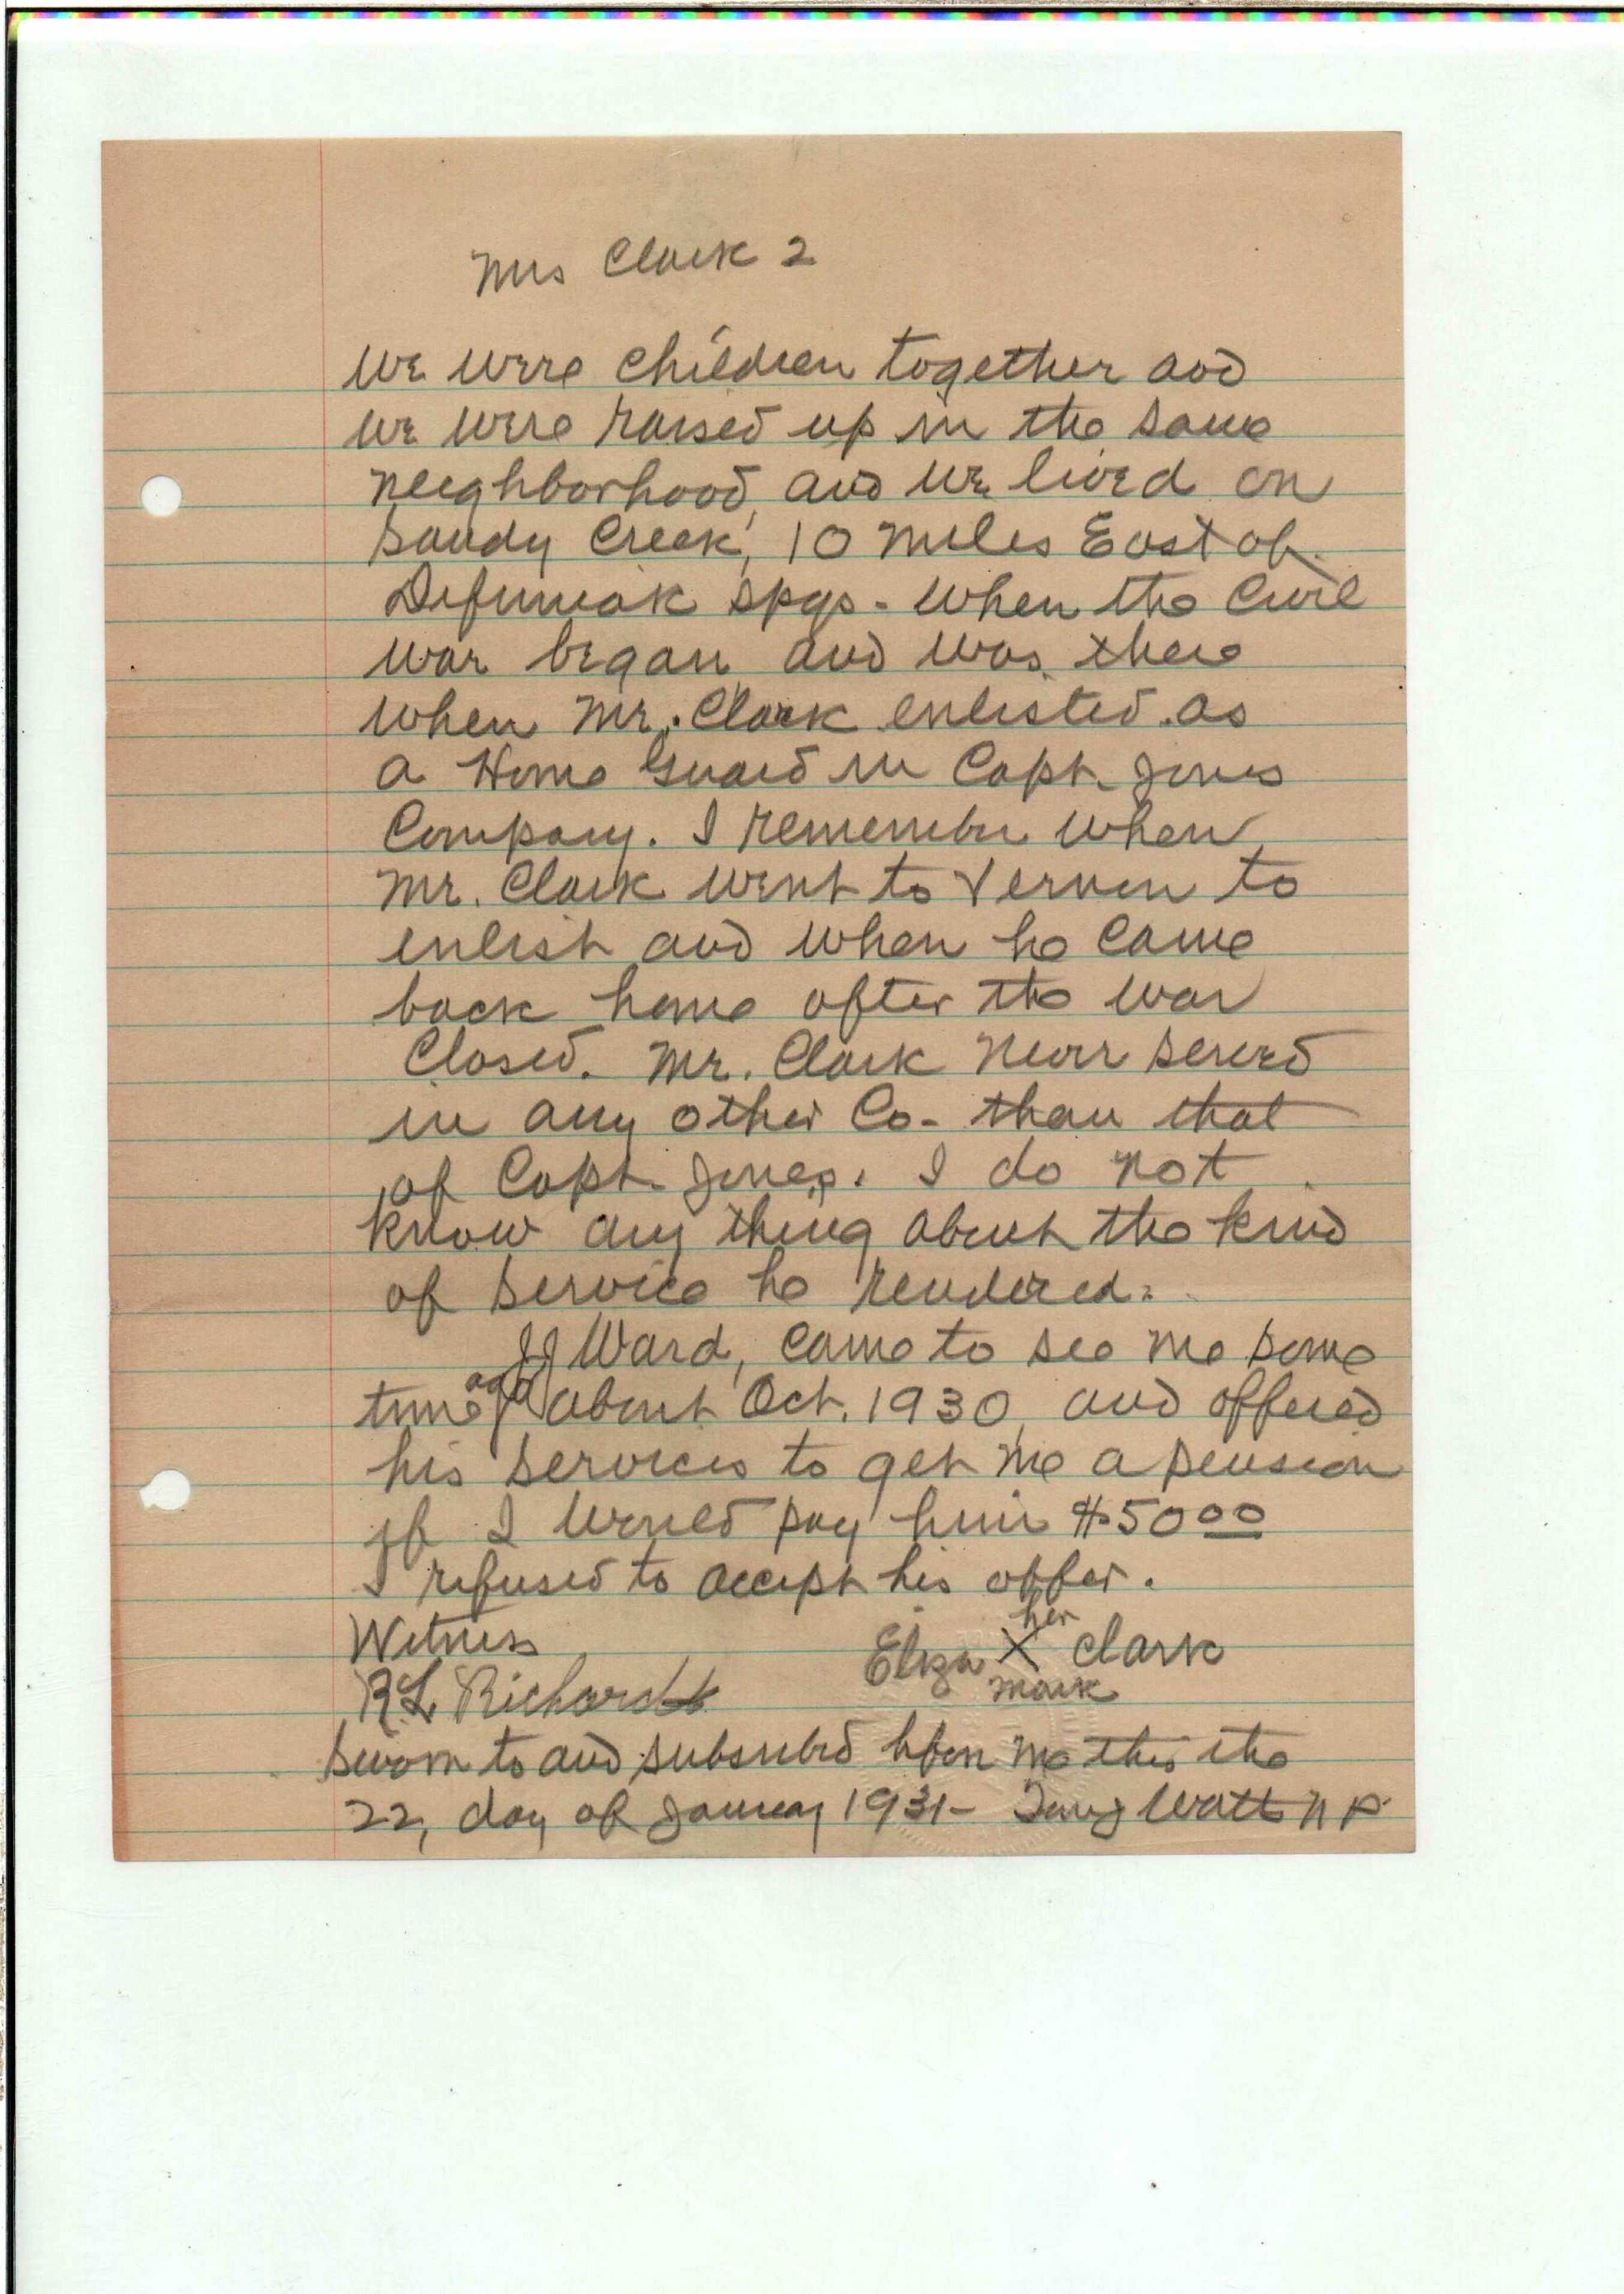 Mrs Clark 2
We were children together and
we were raised up in the same
neighborhood, and we lived on
Sandy Creek, 10 miles East of
Defuniak Spgs - when the Civil
war began and was there
when Mr. Clark enlisted as
a Home Guard in Capt. Jones
Company. I remember when
Mr. Clark went to Vernon to
enlist and when he came
back home after the war
closed. Mr. Clark never served
in any other Co- than that
of Capt. Jones. I do not
know any thing about the kind
of service he rendered.
JJ Ward, came to see me some
time ago about Oct. 1930, and offered
his services to get me a pension
if I would pay him $50 00
I refused to accept his offer.
Witness
Eliza her X mark Clark
RL Richards
Sworn to and subscribed before me this the
22, day of January 1931- Watts N P.